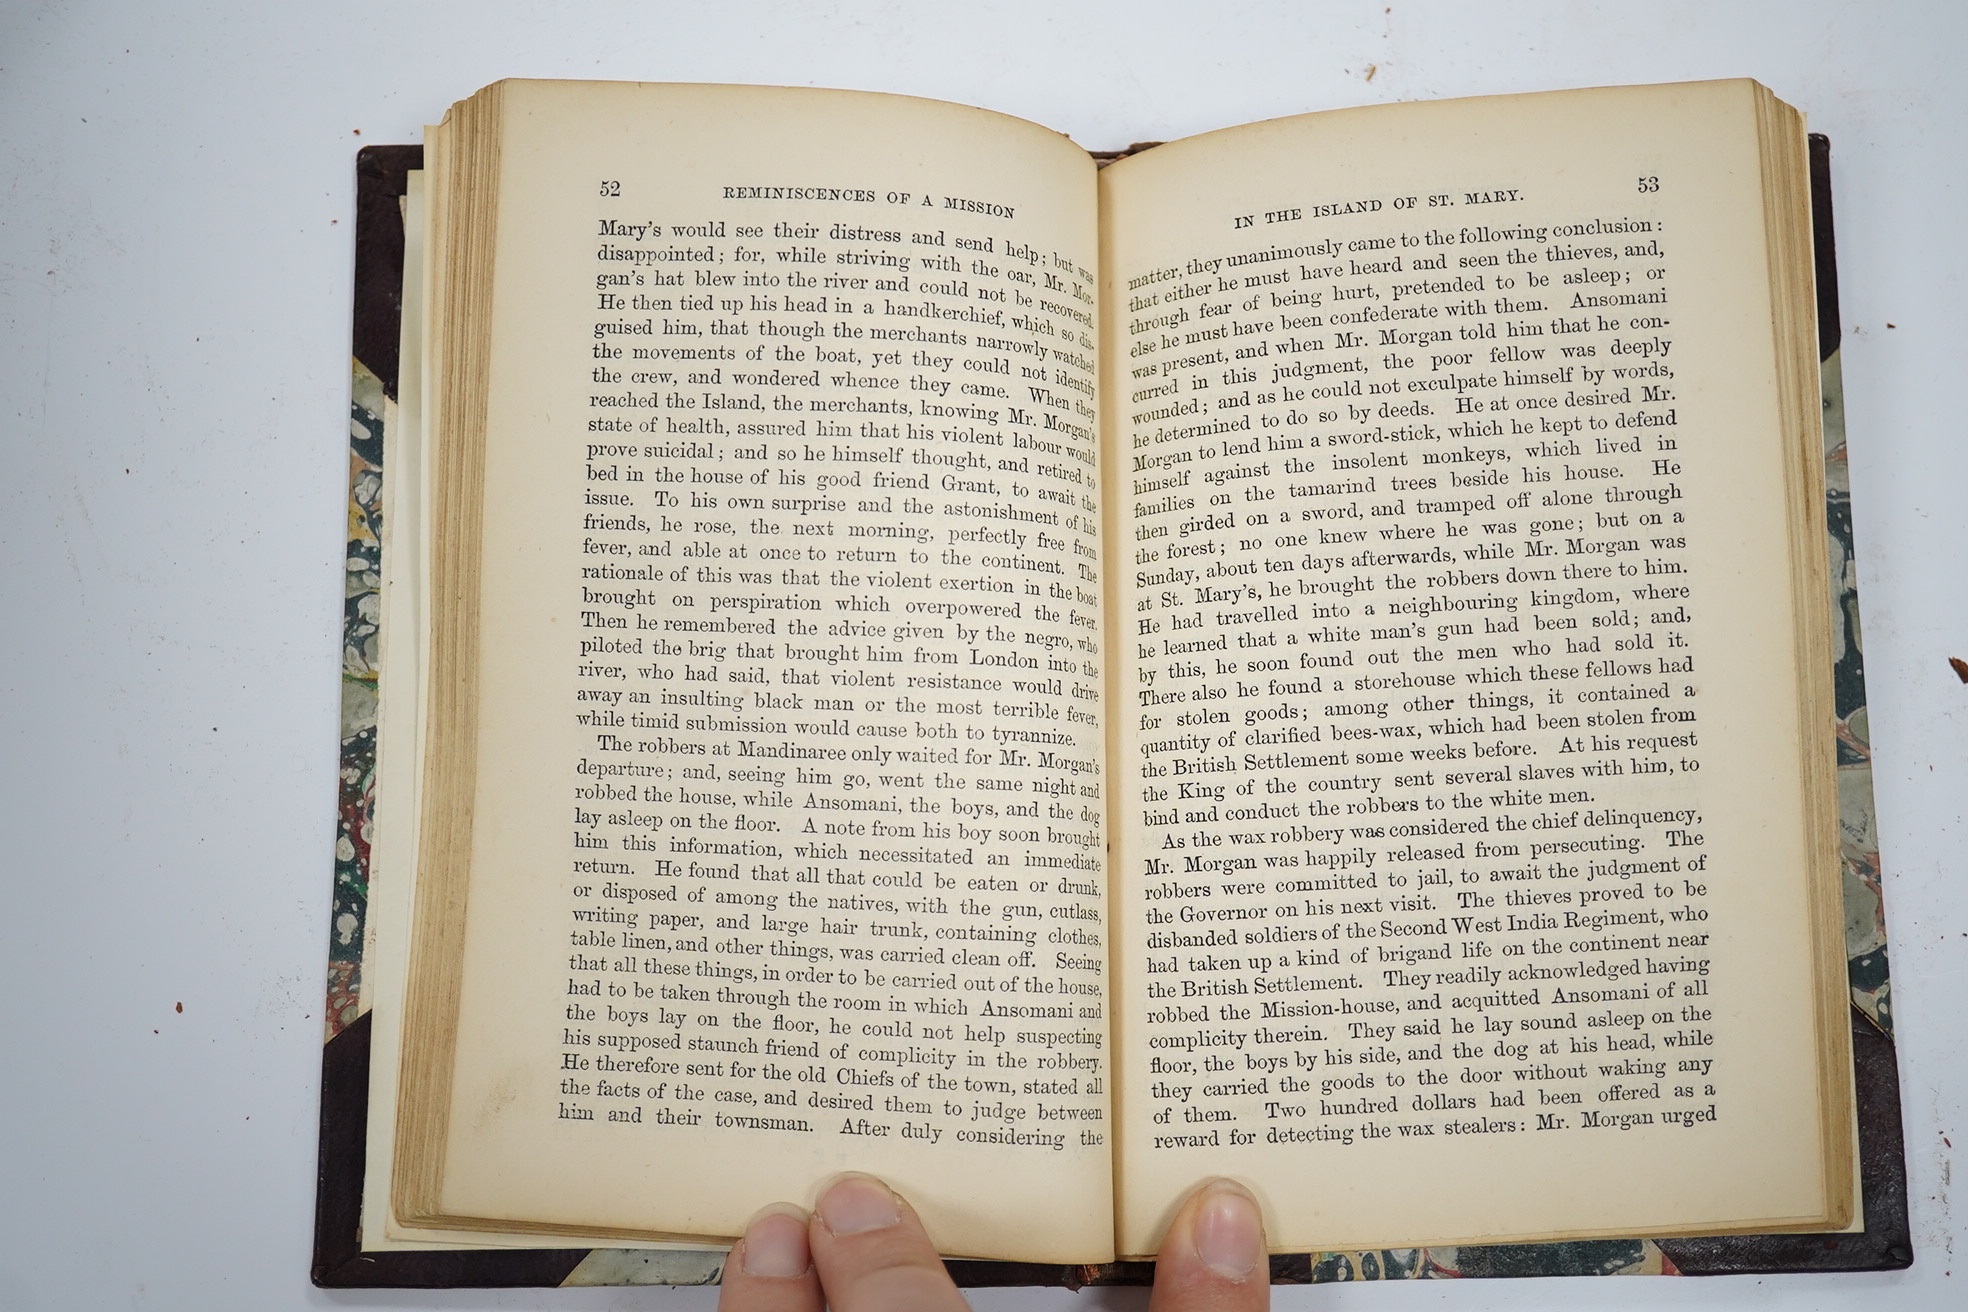 52
REMINISCENCES OF A MISSION
Mary's would see their distress and send help; but was
disappointed; for, while striving with the oar, Mr. Mor-
gan's hat blew into the river and could not be recovered.
He then tied up his head in a handkerchief, which so dis-
guised him, that though the merchants narrowly watched
the movements of the boat, yet they could not identify
the crew, and wondered whence they came. When they
reached the Island, the merchants, knowing Mr. Morgan's
state of health, assured him that his violent labour would
prove suicidal; and so he himself thought, and retired to
bed in the house of his good friend Grant, to await the
issue. To his own surprise and the astonishment of his
friends, he rose, the next morning, perfectly free from
fever, and able at once to return to the continent. The
rationale of this was that the violent exertion in the boat
brought on perspiration which overpowered the fever.
Then he remembered the advice given by the negro, who
piloted the brig that brought him from London into the
river, who had said, that violent resistance would drive
away an insulting black man or the most terrible fever,
while timid submission would cause both to tyrannize.
The robbers at Mandinaree only waited for Mr. Morgan's
departure; and, seeing him go, went the same night and
robbed the house, while Ansomani, the boys, and the dog
lay asleep on the floor. A note from his boy soon brought
him this information, which necessitated an immediate
return. He found that all that could be eaten or drunk,
or disposed of among the natives, with the gun, cutlass,
writing paper, and large hair trunk, containing clothes,
table linen, and other things, was carried clean off. Seeing
that all these things, in order to be carried out of the house,
had to be taken through the room in which Ansomani and
the boys lay on the floor, he could not help suspecting
his supposed staunch friend of complicity in the robbery.
He therefore sent for the old Chiefs of the town, stated all
the facts of the case, and desired them to judge between
him and their townsman. After duly considering the
IN THE ISLAND OF ST. MARY.
53
matter, they unanimously came to the following conclusion:
that either he must have heard and seen the thieves, and,
through fear of being hurt, pretended to be asleep; or
else he must have been confederate with them. Ansomani
was present, and when Mr. Morgan told him that he con-
curred in this judgment, the poor fellow was deeply
wounded; and as he could not exculpate himself by words,
he determined to do so by deeds. He at once desired Mr.
Morgan to lend him a sword-stick, which he kept to defend
himself against the insolent monkeys, which lived in
families on the tamarind trees beside his house. He
then girded on a sword, and tramped off alone through
the forest; no one knew where he was gone; but on a
Sunday, about ten days afterwards, while Mr. Morgan was
at St. Mary's, he brought the robbers down there to him.
He had travelled into a neighbouring kingdom, where
he learned that a white man's gun had been sold; and,
by this, he soon found out the men who had sold it.
There also he found a storehouse which these fellows had
for stolen goods; among other things, it contained a
quantity of clarified bees-wax, which had been stolen from
the British Settlement some weeks before. At his request
the King of the country sent several slaves with him, to
bind and conduct the robbers to the white men.
As the wax robbery was considered the chief delinquency,
Mr. Morgan was happily released from persecuting. The
robbers were committed to jail, to await the judgment of
the Governor on his next visit. The thieves proved to be
disbanded soldiers of the Second West India Regiment, who
had taken up a kind of brigand life on the continent near
the British Settlement. They readily acknowledged having
robbed the Mission-house, and acquitted Ansomani of all
complicity therein. They said he lay sound asleep on the
floor, the boys by his side, and the dog at his head, while
they carried the goods to the door without waking any
of them. Two hundred dollars had been offered as a
reward for detecting the wax stealers: Mr. Morgan urged